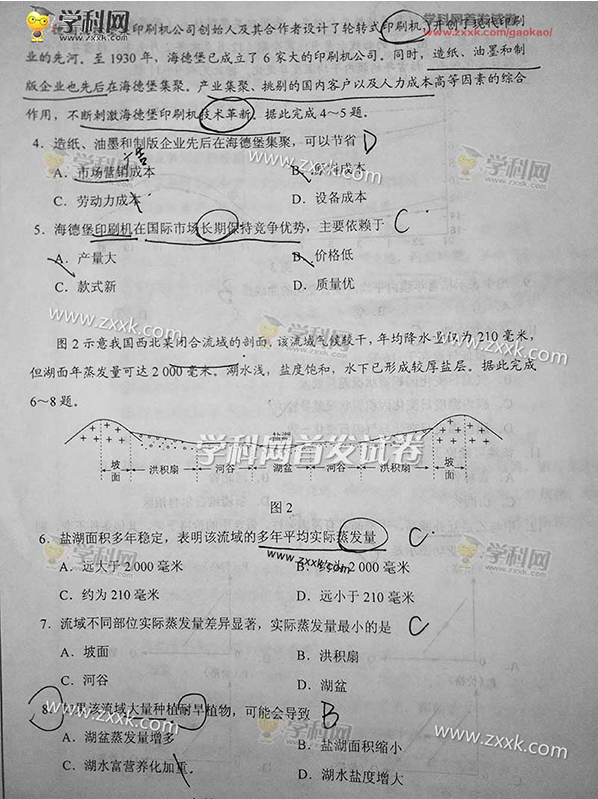 学科网 学科网首发试卷
www.zxxk.com www.zxxk.com/gaokao/
印刷机公司创始人及其合作者设计了轮转式印刷机，开创了现代印刷
业的先河。至 1930 年，海德堡已成立了 6 家大的印刷公司。同时，造纸、油墨和制
版企业也先后在海德堡集聚。产业集聚、挑剔的国内客户以及人力成本高等因素的综合
作用，不断刺激海德堡印刷机技术革新。据此完成 4～5 题。
4．造纸、油墨和制版企业先后在海德堡集聚，可以节省 D
学科网 www.zxxk.com
学科网 www.zxxk.com
A．市场营销成本
B．原料成本
C．劳动力成本
D．设备成本
5．海德堡印刷机在国际市场长期保持竞争优势，主要依赖于 C
A．产量大
B．价格低
C．款式新
D．质量优
www.zxxk.com
学科网 www.zxxk.com
图 2 示意我国西北某闭合流域的剖面。该流域气候较干，年均降水量仅为 210 毫米，
但湖面年蒸发量可达 2 000 毫米。湖水浅，盐度饱和，水下已形成较厚盐层。据此完成
6～8 题。
盐湖
学科网首发试卷
坡面 洪积扇 河谷 湖盆 河谷 洪积扇 坡面
图 2
6．盐湖面积多年稳定，表明该流域的多年平均实际蒸发量 C
学科网 www.zxxk.com
A．远大于 2 000 毫米
B．约为 2 000 毫米
C．约为 210 毫米
D．远小于 210 毫米
7．流域不同部位实际蒸发量差异显著，实际蒸发量最小的是 C
A．坡面
B．洪积扇
C．河谷
D．湖盆
www.zxxk.com
8．如果该流域大量种植耐旱植物，可能会导致 B
学科网 www.zxxk.com
A．湖盆蒸发量增多
B．盐湖面积缩小
C．湖水富营养化加重
D．湖水盐度增大